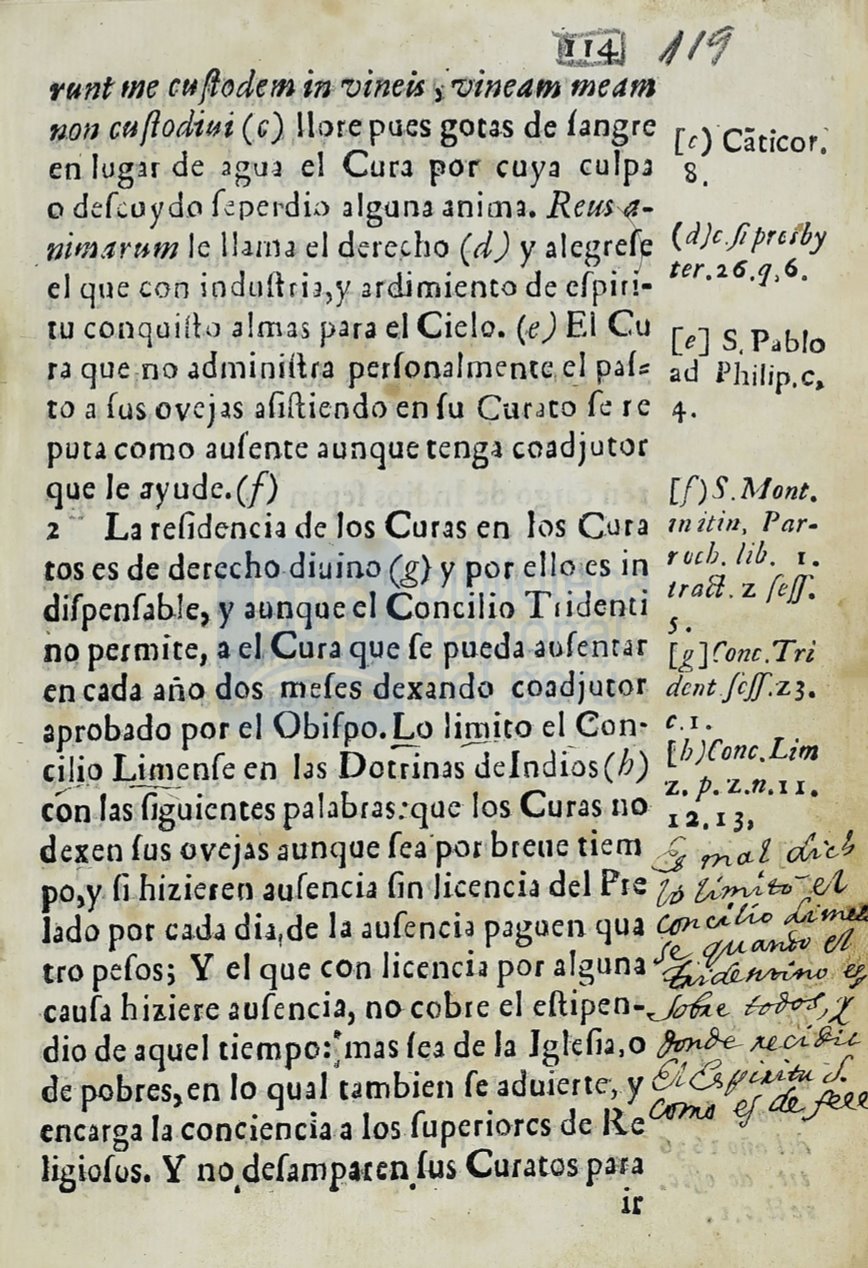 114 119
runt me cuſtodem in vineis, vineam meam
non cuſtodiui (c) llore pues gotas de ſangre
en lugar de agua el Cura por cuya culpa
o deſcuydo ſeperdio alguna anima. Reus a-
nimarum le llama el derecho (d) y alegreſe
el que con induſtria, y ardimiento de eſpiri-
tu conquiſto almas para el Cielo. (e) El Cu
ra que no adminiſtra perſonalmente el paſ-
to a ſus ovejas aſiſtiendo en ſu Curato ſe re
puta como auſente aunque tenga coadjutor
que le ayude.(f)
2 La reſidencia de los Curas en los Cura
tos es de derecho diuino (g) y por ello es in
diſpenſable, y aunque el Concilio Tridenti
no permite, a el Cura que ſe pueda auſentar
en cada año dos meſes dexando coadjutor
aprobado por el Obiſpo. Lo limito el Con-
cilio Limenſe en las Dotrinas deIndios (h)
con las ſiguientes palabras: que los Curas no
dexen ſus ovejas aunque ſea por breue tiem
po, y ſi hizieren auſencia ſin licencia del Pre
lado por cada dia, de la auſencia paguen qua
tro peſos; Y el que con licencia por alguna
cauſa hiziere auſencia, no cobre el eſtipen-
dio de aquel tiempo: mas ſea de la Igleſia, o
de pobres, en lo qual tambien ſe aduierte, y
encarga la conciencia a los ſuperiores de Re
ligioſos. Y no deſamparen ſus Curatos para
ir
[c) Cãticor.
8.
(d)c. ſi presby
ter. 26. q, 6.
[e] S. Pablo
ad Philip. c,
4.
[f) S. Mont.
in itin, Par-
roch. lib. 1.
tract. 2 ſeſſ.
5.
[g] Conc. Tri
dent ſeſſ. 23.
c. 1.
[h) Conc. Lim
2. p. 2. n. 11.
12. 13,
Es mal dich
lo limito el
Concilio Limen
se quando el
Tridentino es
sobre todos, y
donde recidie
El Espiritu S.
Como es de fee